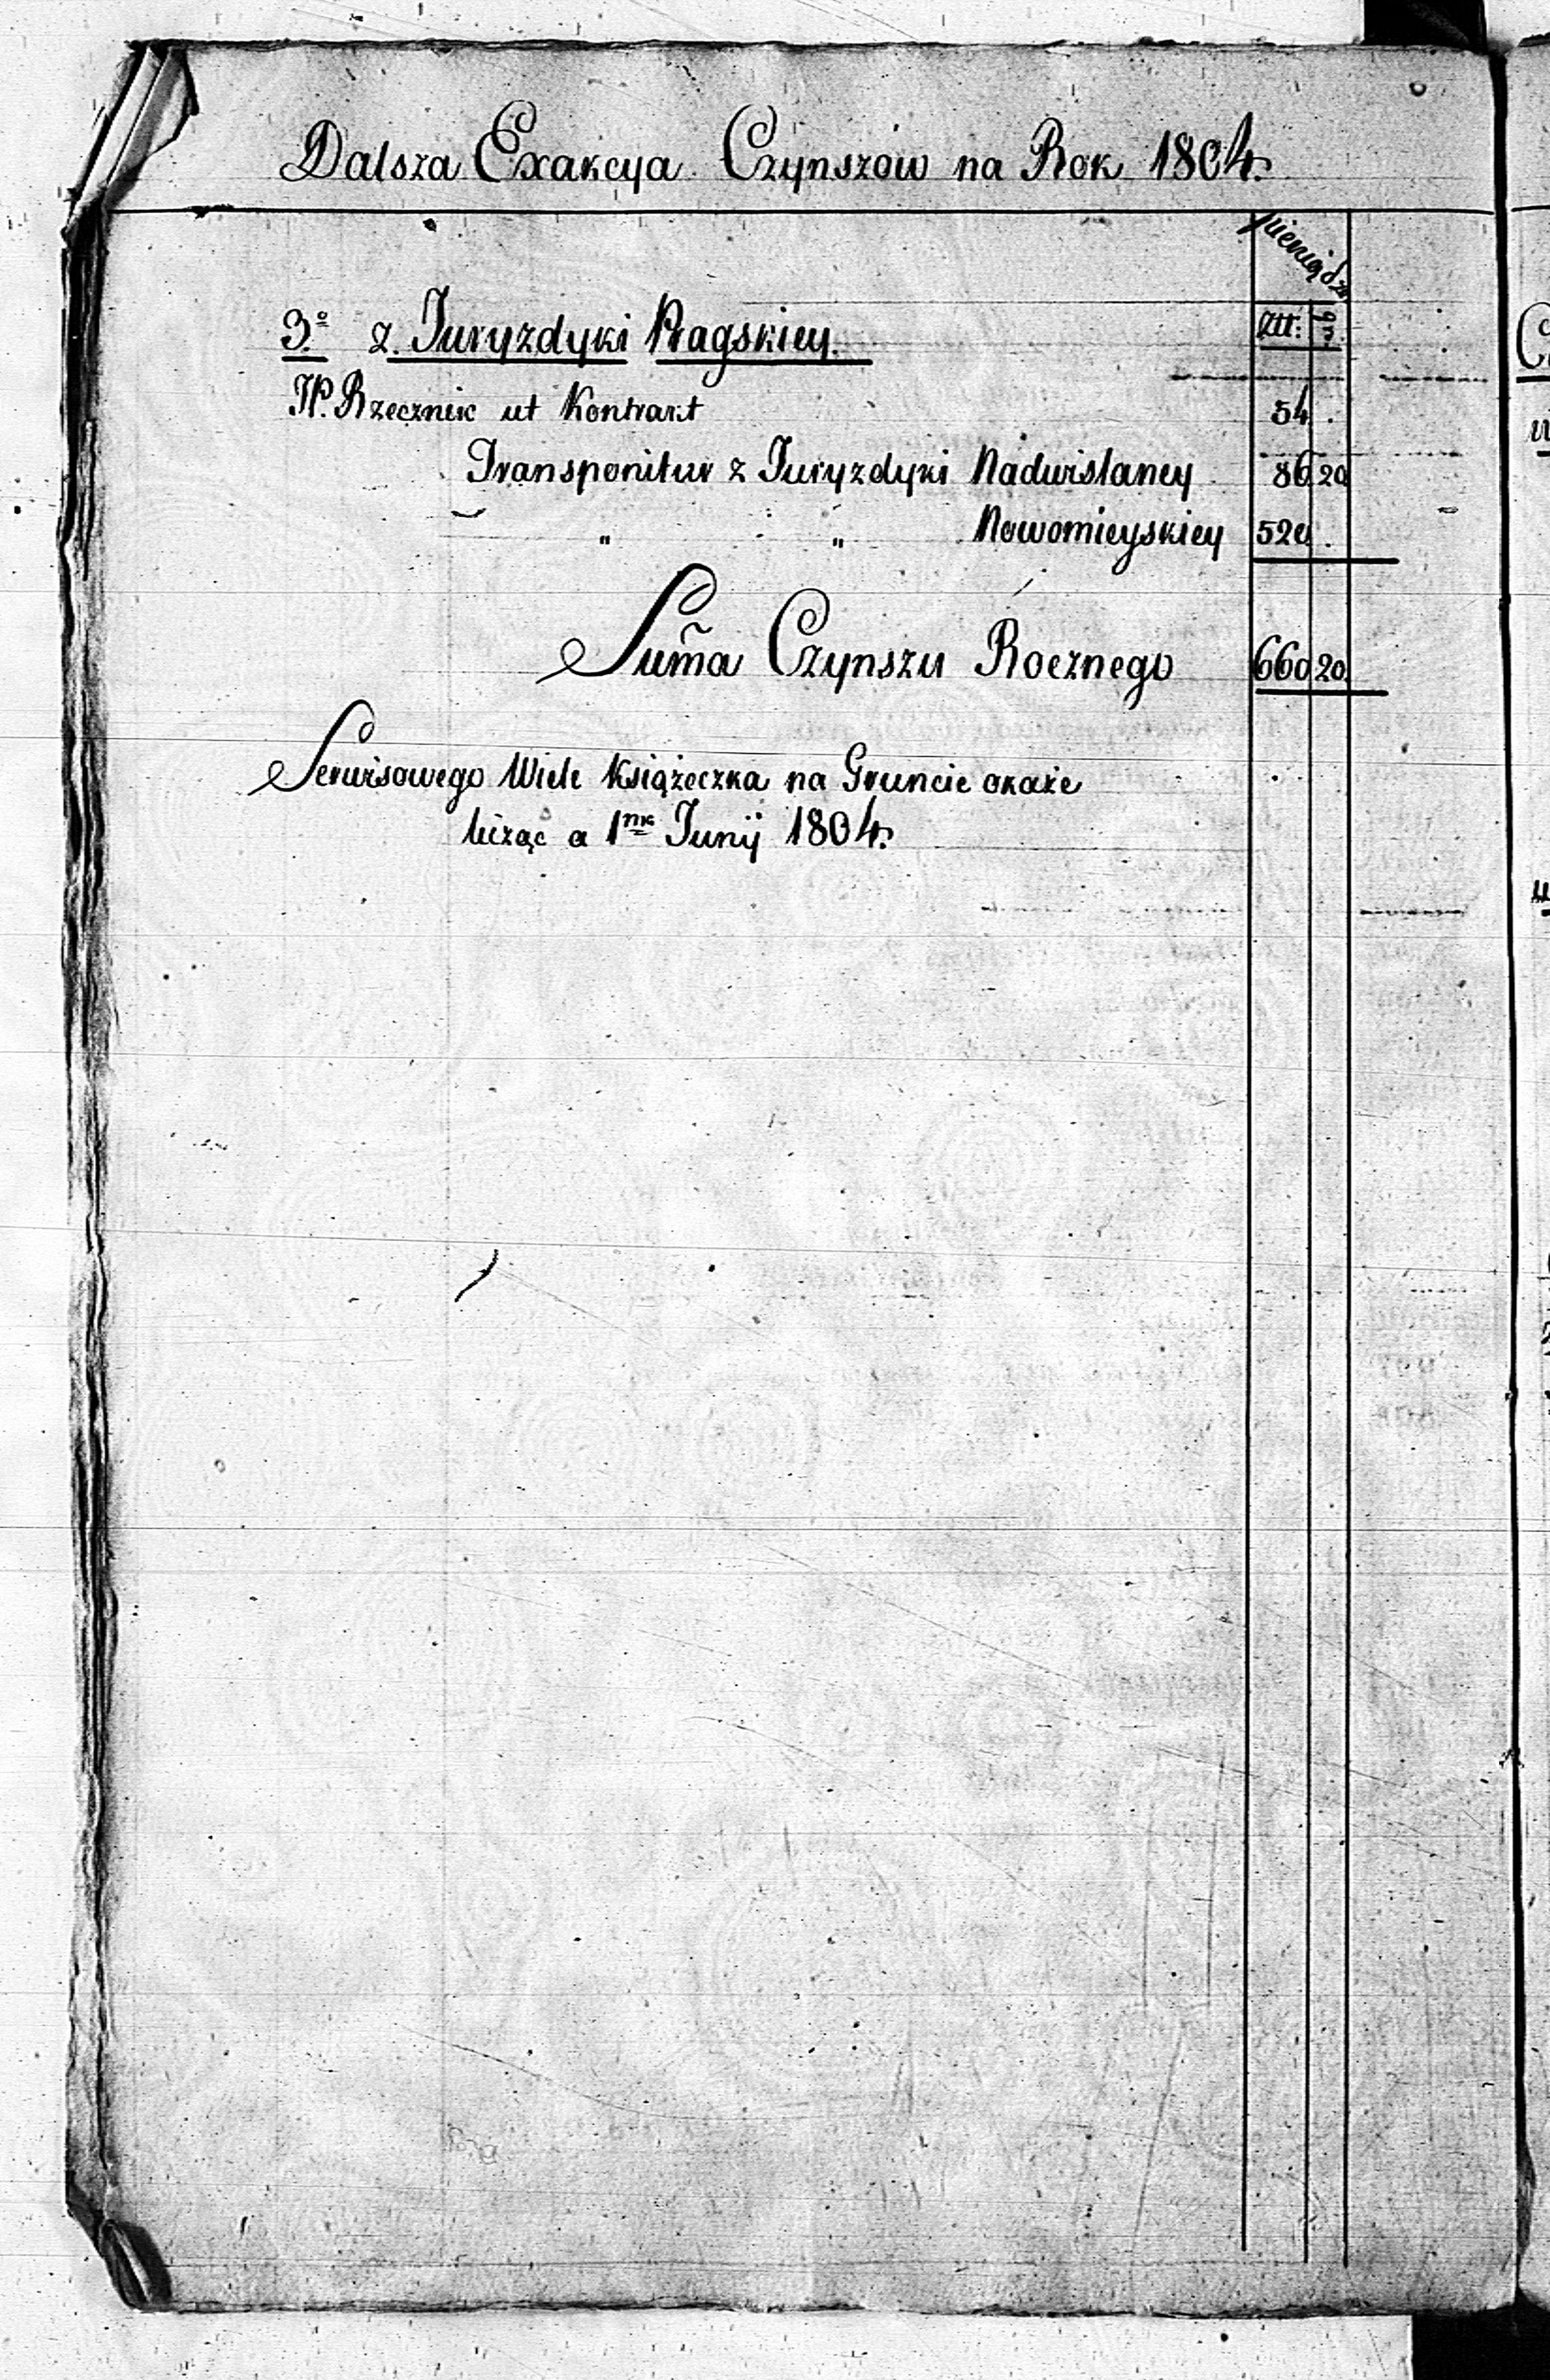 Dalsza Exakcya Czynszow na Rok 1804.
pieniądze
Złł: gr:
3º z Juryzdyki Pragskiey.
JP. Rzecznik ut Kontrakt 54 .
Transponitur z Juryzdyki Nadwislaney 86 20
„ „ Nowomieyskiey 520 .
Sum̃a Czynszu Rocznego 660 20.
Serwisowego Wiele Książeczka na Gruncie okaże
licząc a 1ma Junij 1804.